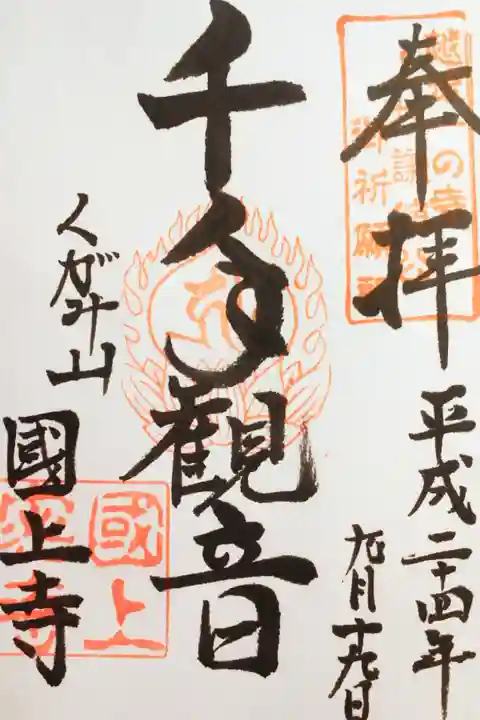 奉拝
平成二十四年
九月十九日
御祈願
千手觀音
くがみ山
國上寺
國上